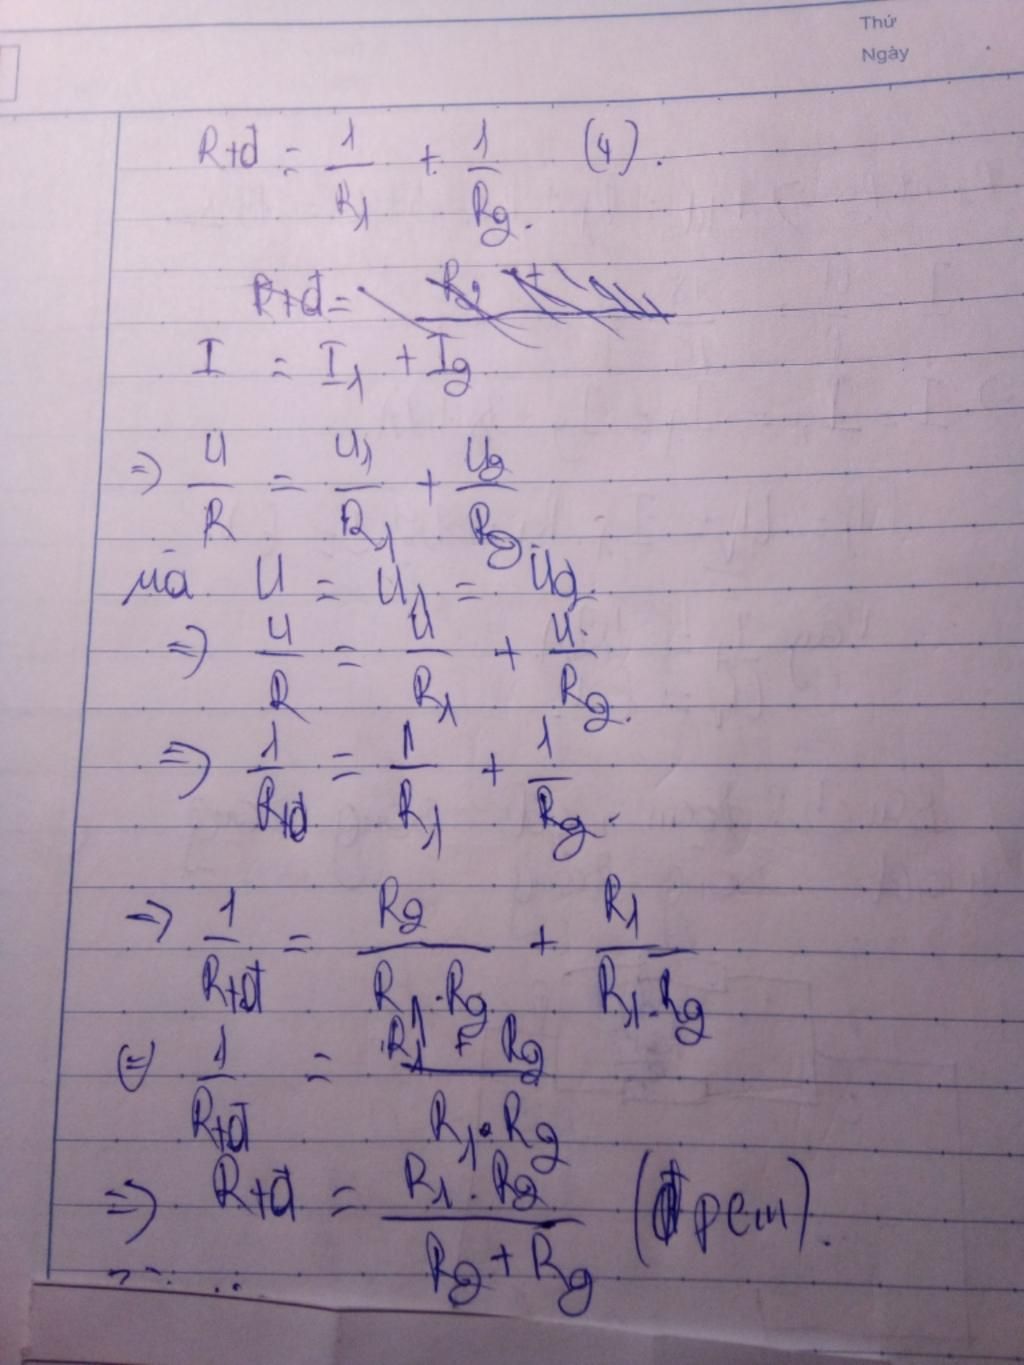 Thứ
Ngày
Rtđ = 1/R1 + 1/R2. (4).
Rtđ =
I = I1 + I2
=> U/R = U1/R1 + U2/R2
mà U = U1 = U2.
=> U/R = U/R1 + U/R2.
=> 1/Rtđ = 1/R1 + 1/R2.
=> 1/Rtđ = R2/R1.R2 + R1/R1.R2
<=> 1/Rtđ = R1 + R2/R1.R2
=> Rtđ = R1.R2/R2+R2 (đpcm).